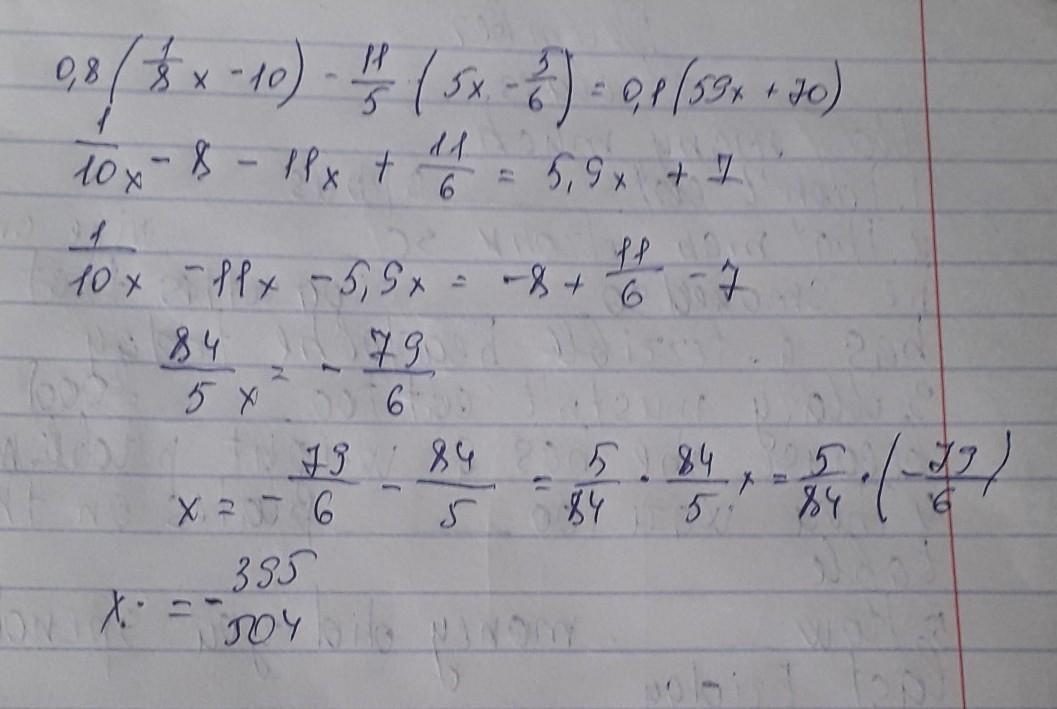 0,8(1/8 x - 10) - 11/5 (5x - 5/6) = 0,1(59x + 70)
1/10 x - 8 - 11x + 11/6 = 5,9x + 7
1/10 x - 11x - 5,9x = -8 + 11/6 - 7
84/5 x = - 79/6
x = - 79/6 - 84/5 = 5/84 · 84/5 x = 5/84 · (- 79/6)
x = - 395/504